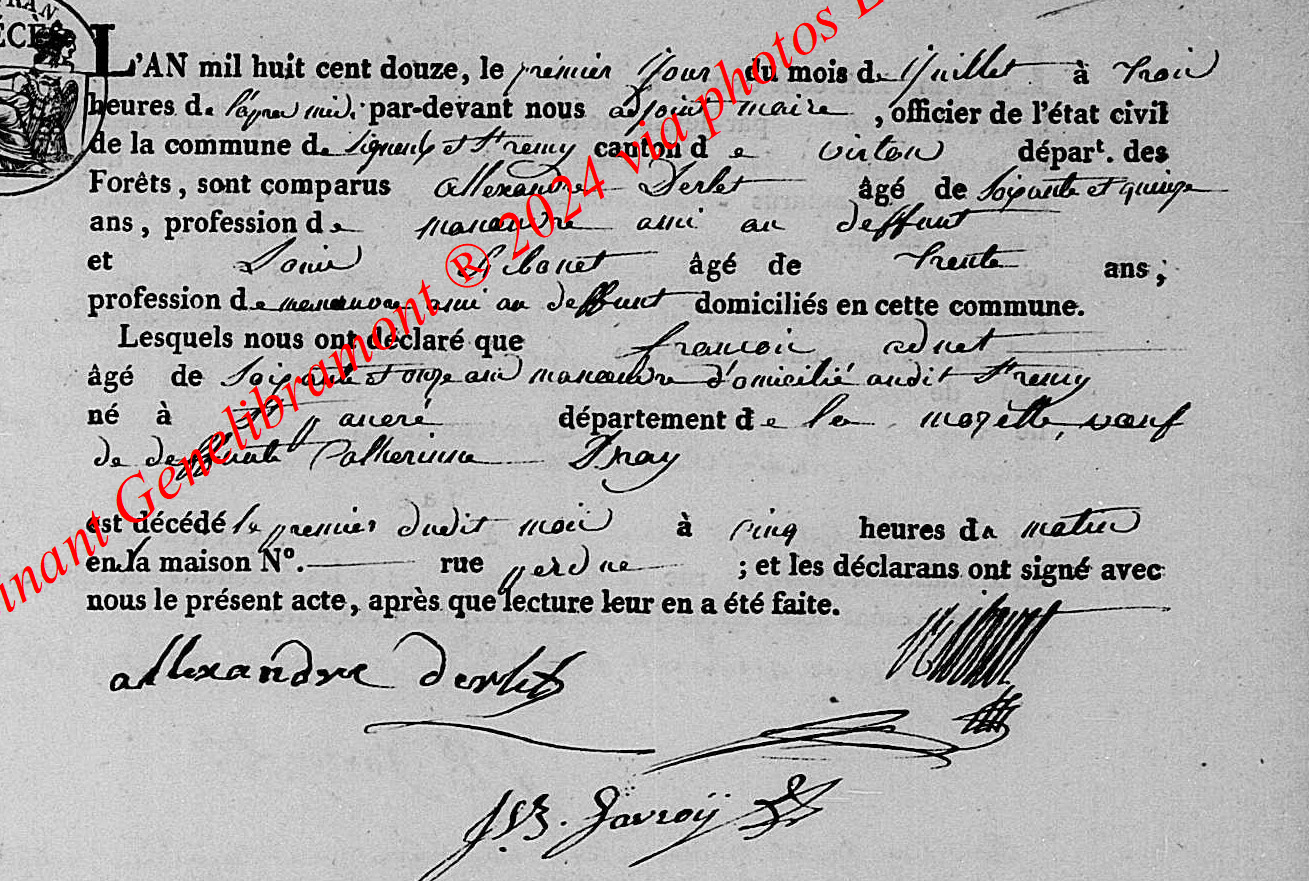 L'AN mil huit cent douze, le premier jour du mois de juillet à trois
heures de l'apres midi par-devant nous adjoint maire, officier de l'état civil
de la commune de Signeulx et St remy canton de virton départ. des
Forêts, sont comparus allexandre Derlet âgé de soixante et quinze
ans, profession de maneuvre ami au deffunt
et Louis âgé de trente ans;
profession de ami au deffunt domiciliés en cette commune.
Lesquels nous ont déclaré que francois adnet
âgé de soixante et onze ans maneuvre domicilié audit St remy
né à St département de la mozelle, veuf
de deffunte Catherinne
est décédé le premier dudit mois à cinq heures du matin
en la maison N°. rue ; et les déclarans ont signé avec
nous le présent acte, après que lecture leur en a été faite.
allexandre derlet
J.B. Javroÿ
inant Genelibramont ® 2024 via photos